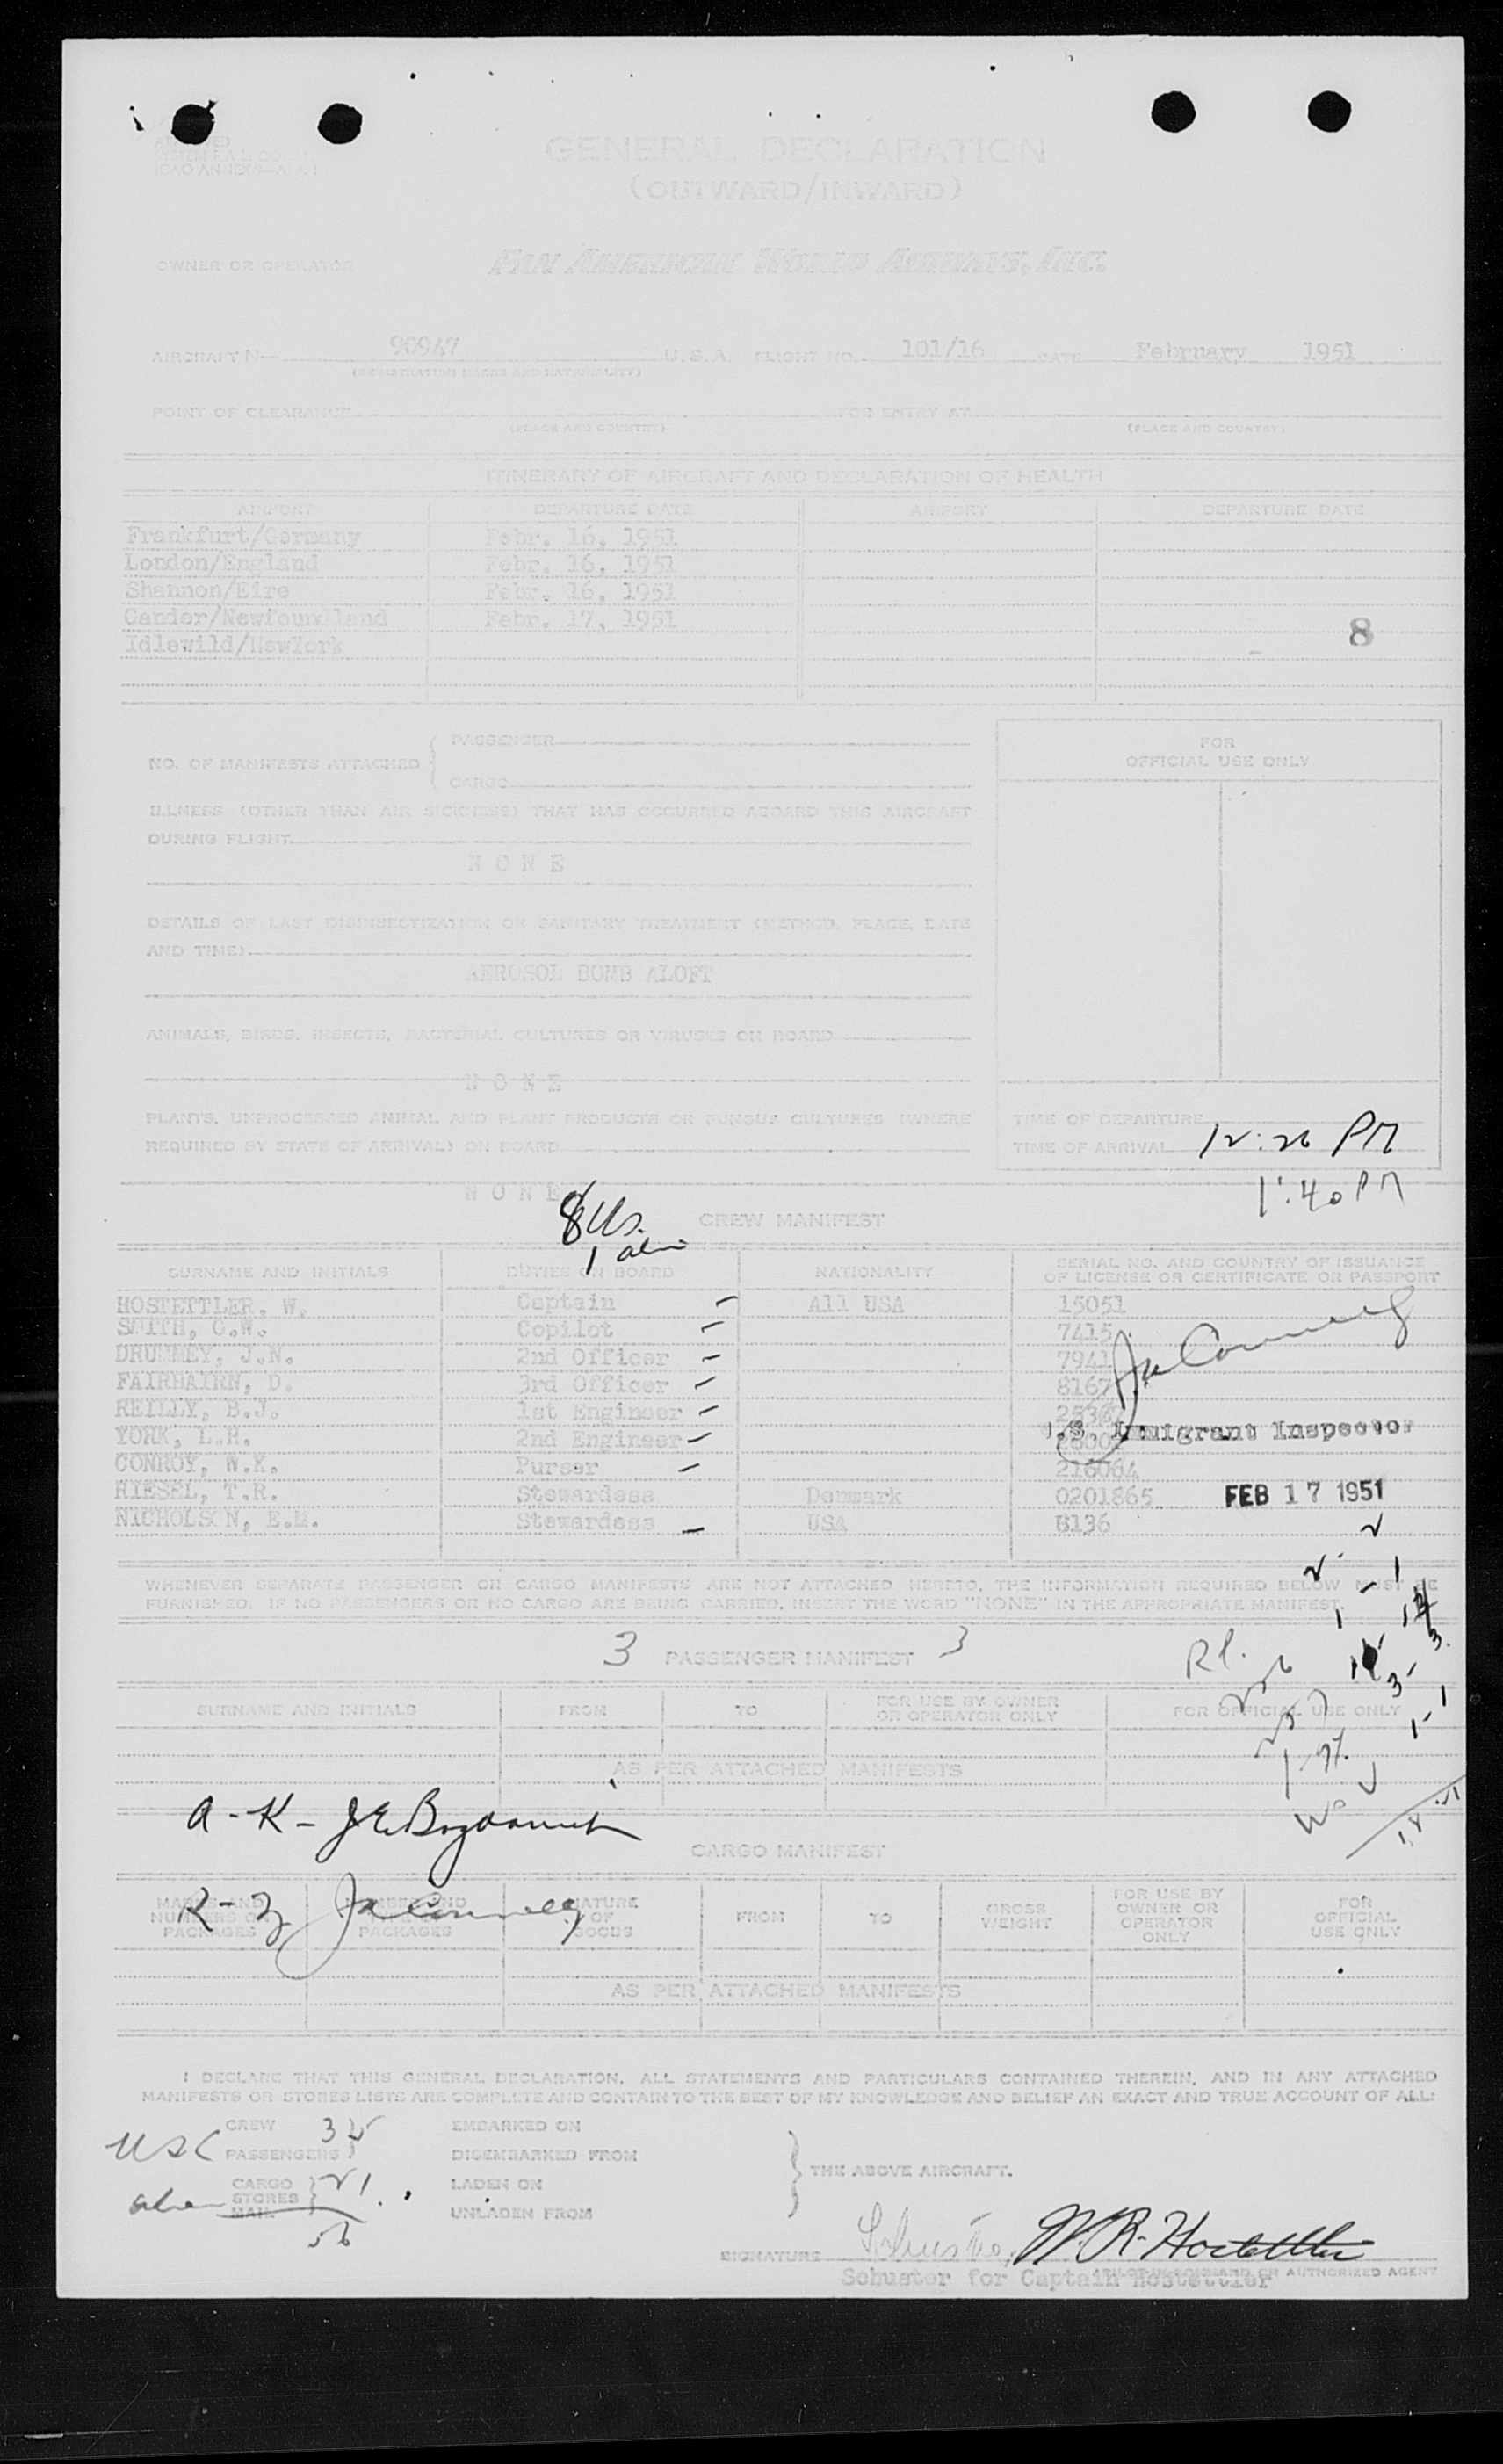 GENERAL DECLARATION
(OUTWARD/INWARD)
OWNER OR OPERATOR PAN AMERICAN WORLD AIRWAYS, INC.
AIRCRAFT N— 90947 U.S.A. FLIGHT NO. 101/16 DATE February 1951
(REGISTRATION MARKS AND NATIONALITY)
POINT OF CLEARANCE FOR ENTRY AT
(PLACE AND COUNTRY) (PLACE AND COUNTRY)
ITINERARY OF AIRCRAFT AND DECLARATION OF HEALTH
AIRPORT DEPARTURE DATE AIRPORT DEPARTURE DATE
Frankfurt/Germany Febr. 16, 1951
London/England Febr. 16, 1951
Shannon/Eire Febr. 16, 1951
Gander/Newfoundland Febr. 17, 1951
8
Idlewild/NewYork
NO. OF MANIFESTS ATTACHED { PASSENGER
CARGO
FOR
OFFICIAL USE ONLY
ILLNESS (OTHER THAN AIR SICKNESS) THAT HAS OCCURRED ABOARD THIS AIRCRAFT
DURING FLIGHT
N O N E
DETAILS OF LAST DISINSECTIZATION OR SANITARY TREATMENT (METHOD, PLACE, DATE
AND TIME)
AEROSOL BOMB ALOFT
ANIMALS, BIRDS, INSECTS, BACTERIAL CULTURES OR VIRUSES ON BOARD
N O N E
PLANTS, UNPROCESSED ANIMAL AND PLANT PRODUCTS OR FUNGUS CULTURES (WHERE
REQUIRED BY STATE OF ARRIVAL) ON BOARD
TIME OF DEPARTURE
TIME OF ARRIVAL 12:26 PM
N O N E
1:40 PM
8 Us.
CREW MANIFEST
1
SURNAME AND INITIALS DUTIES ON BOARD NATIONALITY SERIAL NO. AND COUNTRY OF ISSUANCE
OF LICENSE OR CERTIFICATE OR PASSPORT
HOSTETTLER, W. Captain — All USA 15051
SMITH, C.W. Copilot — 7415
DRUMMEY, J.N. 2nd Officer — 7941
FAIRBAIRN, D. 3rd Officer — 8167
REILLY, B.J. 1st Engineer —
YORK, L.H. 2nd Engineer —
Immigrant Inspector
CONROY, W.K. Purser — 216064
RIESEL, T.R. Stewardess Denmark 0201865
FEB 17 1951
NICHOLSON, E.M. Stewardess — USA B136
WHENEVER SEPARATE PASSENGER OR CARGO MANIFESTS ARE NOT ATTACHED HERETO, THE INFORMATION REQUIRED BELOW MUST BE
FURNISHED. IF NO PASSENGERS OR NO CARGO ARE BEING CARRIED, INSERT THE WORD "NONE" IN THE APPROPRIATE MANIFEST.
3 PASSENGER MANIFEST 3
SURNAME AND INITIALS FROM TO FOR USE BY OWNER
OR OPERATOR ONLY FOR OFFICIAL USE ONLY
AS PER ATTACHED MANIFESTS
A - K -
CARGO MANIFEST
R - Z
MARKS AND
NUMBERS OF
PACKAGES
NUMBER AND
PACKAGES
NATURE
OF
GOODS
FROM
TO
GROSS
WEIGHT
FOR USE BY
OWNER OR
OPERATOR
ONLY
FOR
OFFICIAL
USE ONLY
AS PER ATTACHED MANIFESTS
I DECLARE THAT THIS GENERAL DECLARATION, ALL STATEMENTS AND PARTICULARS CONTAINED THEREIN, AND IN ANY ATTACHED
MANIFESTS OR STORES LISTS ARE COMPLETE AND CONTAIN TO THE BEST OF MY KNOWLEDGE AND BELIEF AN EXACT AND TRUE ACCOUNT OF ALL:
CREW EMBARKED ON
USC PASSENGERS 35 DISEMBARKED FROM
THE ABOVE AIRCRAFT.
CARGO 21 LADEN ON
STORES
MAIL UNLADEN FROM
56
SIGNATURE W. R. Hostettler
Schuster for Captain Hostettler
OR AUTHORIZED AGENT